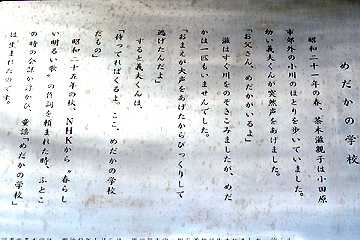 めだかの学校
昭和二十一年の春、茶木滋親子は小田原
市郊外の小川のほとりを歩いていました。
幼い義夫くんが突然声をあげました。
「お父さん、めだかがいるよ」
滋はすぐ川をのぞきこみましたが、めだ
かは一匹もいませんでした。
「おまえが大声をあげたからびっくりして
逃げたんだよ」
すると義夫くんは、
「待ってればくるよ。ここ、めだかの学校
だもの」
昭和二十五年の秋、NHKから〝春らし
い明るい歌〟の作詞を頼まれた時、ふとこ
の時の会話が浮かび、童謡「めだかの学校」
は生まれたのです。